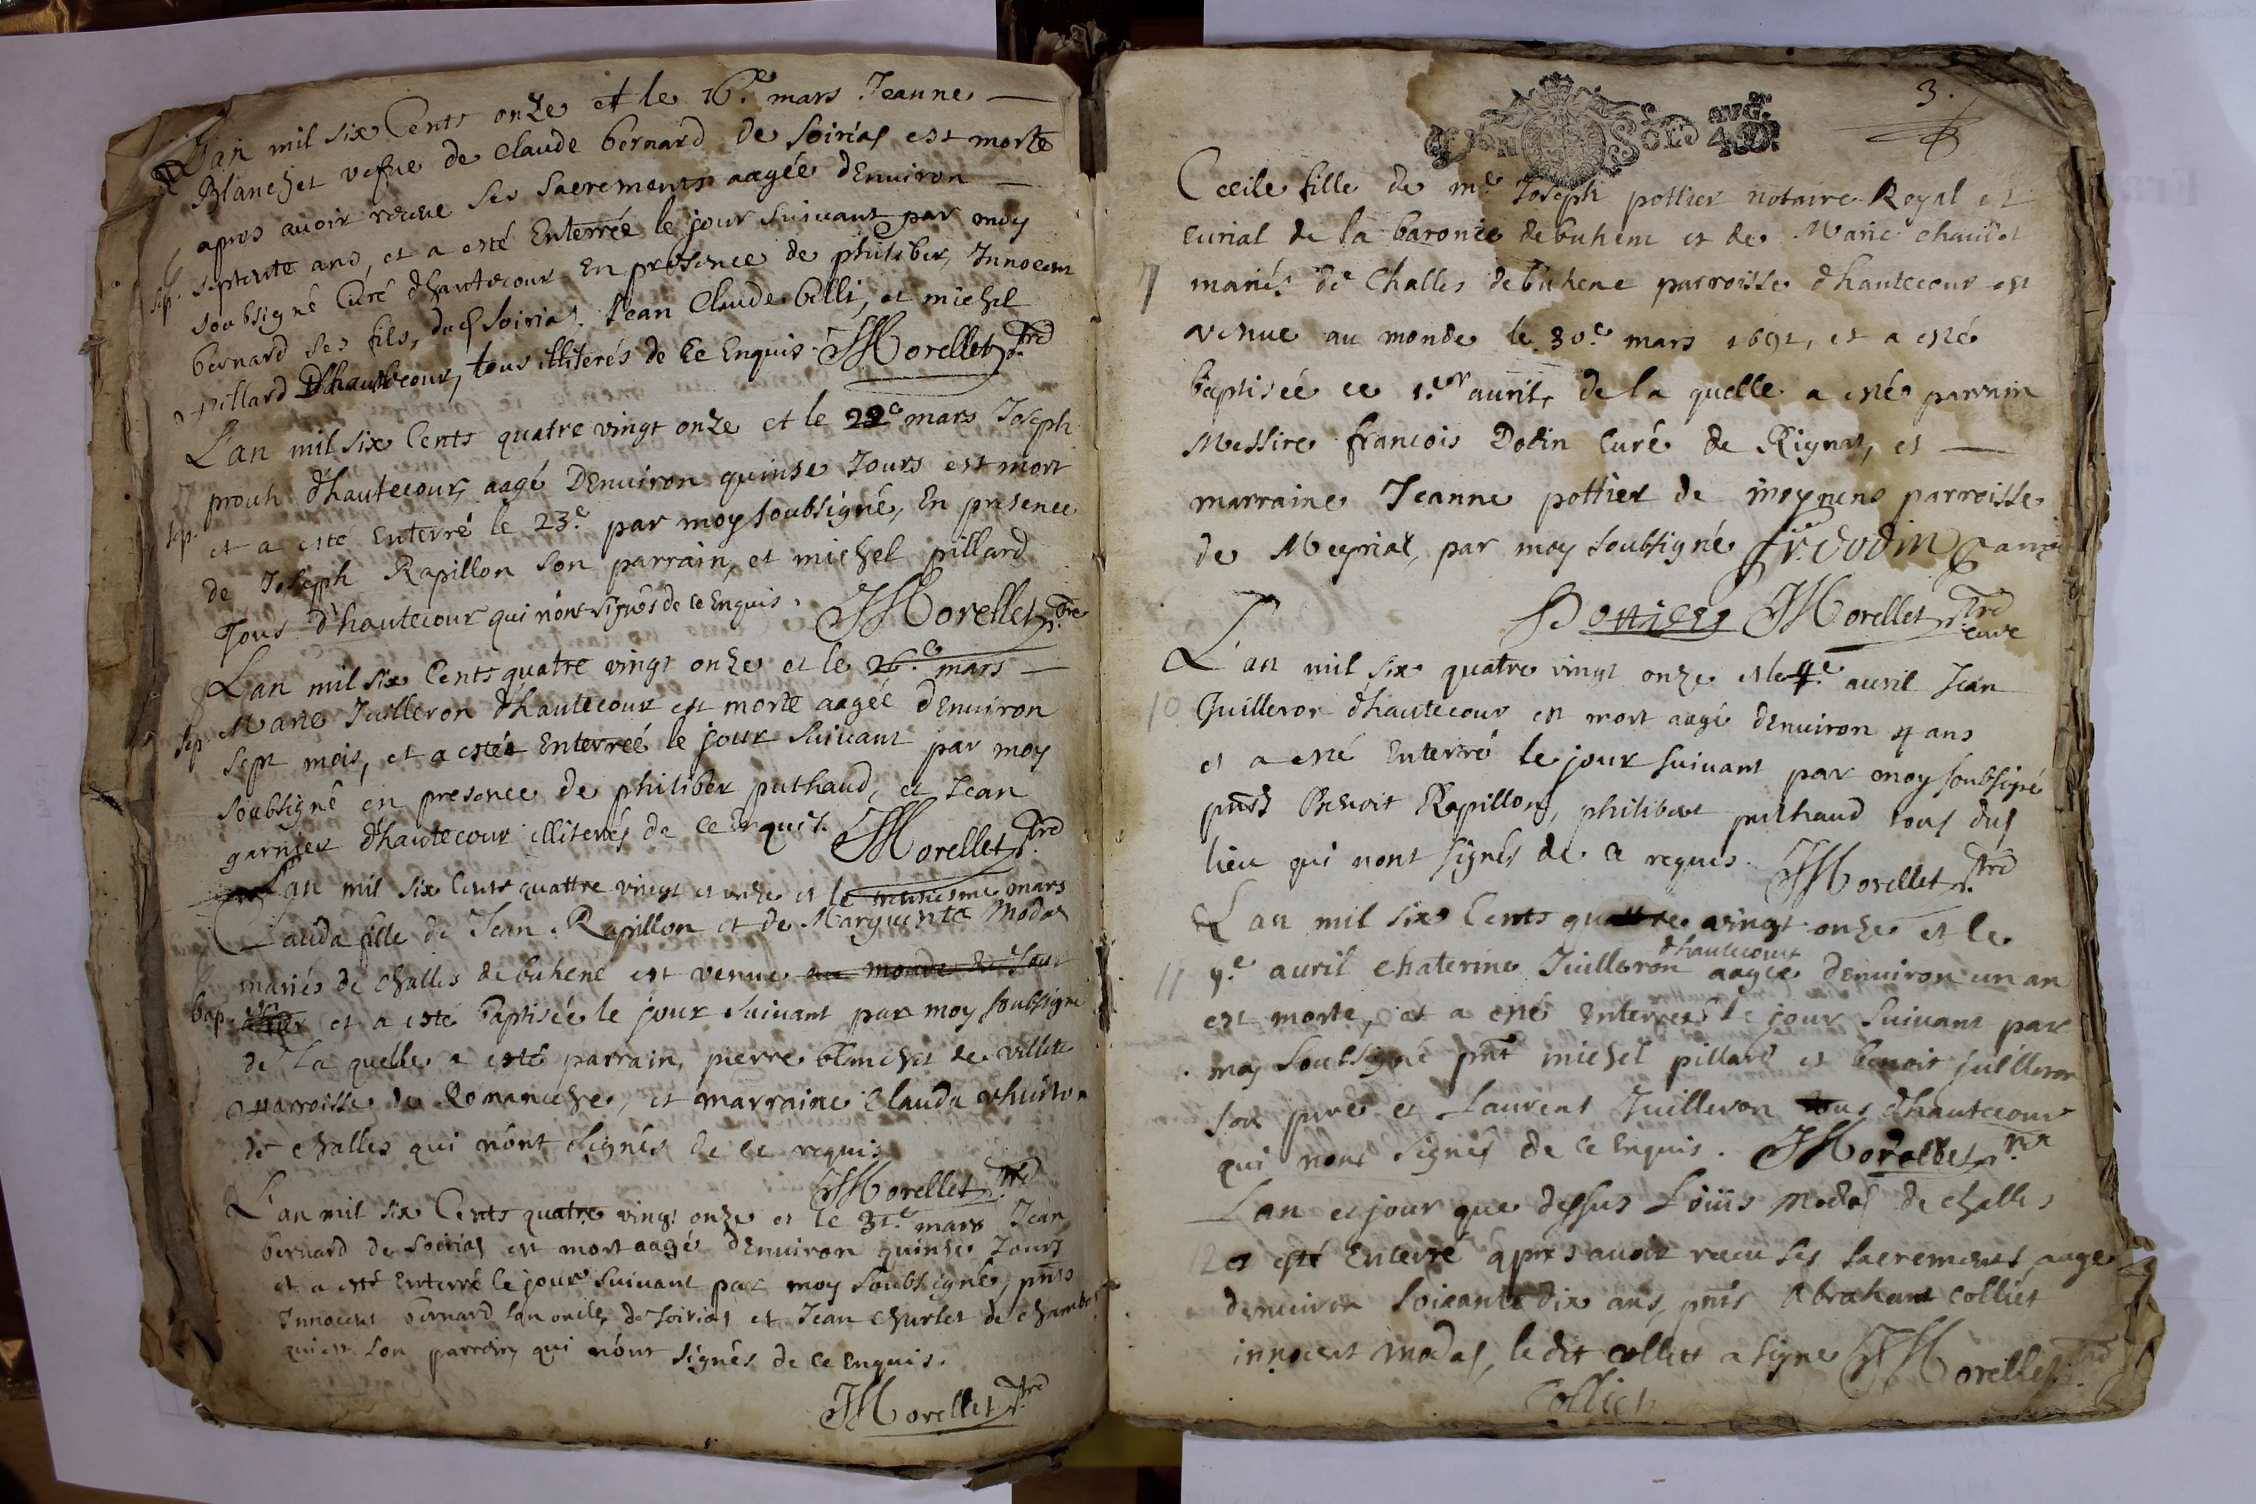 L'an mil six Cents onze et le 16.e mars Jeanne
Blanchet vefue de Claude bernard de Soirias est morte
apres auoir receue ses Sacrements aagée d'Enuiron
6
sep. septente ans, et a esté Enterrée le jour suiuant par moy
soubsigné Curé d'hautecour En presence de philiber, Innocent
bernard ses fils, dud Soirias. Jean Claude billi, et michel
pillard D'hautecour, tous illiterés de ce Enquis. JMorellet ptre
L'an mil six Cents quatre vingt onze et le 22e mars Joseph
7
prouh d'hautecour, aagé D'Enuiron quinse Jours est mort
sep. et a esté Enterré le 23.e par moy soubsigné, En presence
de Joseph Rapillon son parrain, et michel pillard
Tous d'hautecour qui n'ont signés de ce Enquis. JMorellet ptre
L'an mil six Cents quatre vingt onze et le 26.e mars
8
sep. Marie Juilleron d'hautecour est morte aagée d'Enuiron
sept mois, et a estée Enterreé le jour suiuant par moy
soubsigné en presence de philiber puthaud, et Jean
garnier d'hautecour illiterés de ce Enquis. JMorellet ptre
L'an mil six Cents quattre vingt et onze et le trentiesme mars
Clauda fille de Jean Rapillon et de Marguerite Modas
mariés de challes de buhene est venue au monde
bap. et a esté baptisée le jour suiuant par moy soubsigné
de la quelle a esté parrain, pierre blanchet de villette
parroisse de Romaneche, et marraine Clauda
de challes qui n'ont signés de ce requis
JMorellet ptre
L'an mil six Cents quatre vingt onze et le 31.e mars Jean
bernard de Soirias est mort aagé d'Enuiron quinse Jours
et a esté Enterré le jour suiuant par moy soubsigné, pnts
Innocent bernard son oncle, de Soirias et Jean Charlet de
qui est son parrain, qui n'ont signés de ce Enquis.
JMorellet ptre
3.
Cecile fille de m.e Joseph pottier notaire Royal et
curial de la baronie de buhene et de Marie
mariés de Challes de buhene parroisse d'hautecour est
venue au monde le 30.e mars 1691, et a esté
baptisée ce 1.er auril, de la quelle a esté parrain
Messire francois Dodin Curé de Rignat, et
marraine Jeanne pottier de moynens parroisse
de Meyriat, par moy soubsigné fr. Dodin
Pottier JMorellet ptre
curé
L'an mil six quatre vingt onze et le 4.e auril Jean
10 Juilleron d'hautecour est mort aagé d'Enuiron 4 ans
et a esté Enterré le jour suiuant par moy soubsigné
pnts Benoit Rapillon, philibert puthaud tous dud
lieu qui n'ont signés de ce requis. JMorellet ptre
L'an mil six Cents quattre vingt onze et le
d'hautecour
11 9.e auril chaterine Juilleron aagée d'enuiron un an
est morte, et a esté Enterreé le jour suiuant par
moy soubsigné pnt michel pillard et benoit juilleron
son pere et Laurent Juilleron tous d'hautecour
qui n'ont signés de ce Enquis. JMorellet
L'an et jour que dessus Loüis Modas de challes
12 a esté Enterré apres auoir receu ses sacrements aagé
d'enuiron soixante dix ans, pnts Abraham Colliet
innocent modas, le dit colliet a signé JMorellet ptre
Colliet